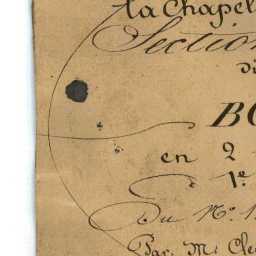 la Chapel
Section
di
BO
en 2
1e
Du No. 1
Par M. Cle